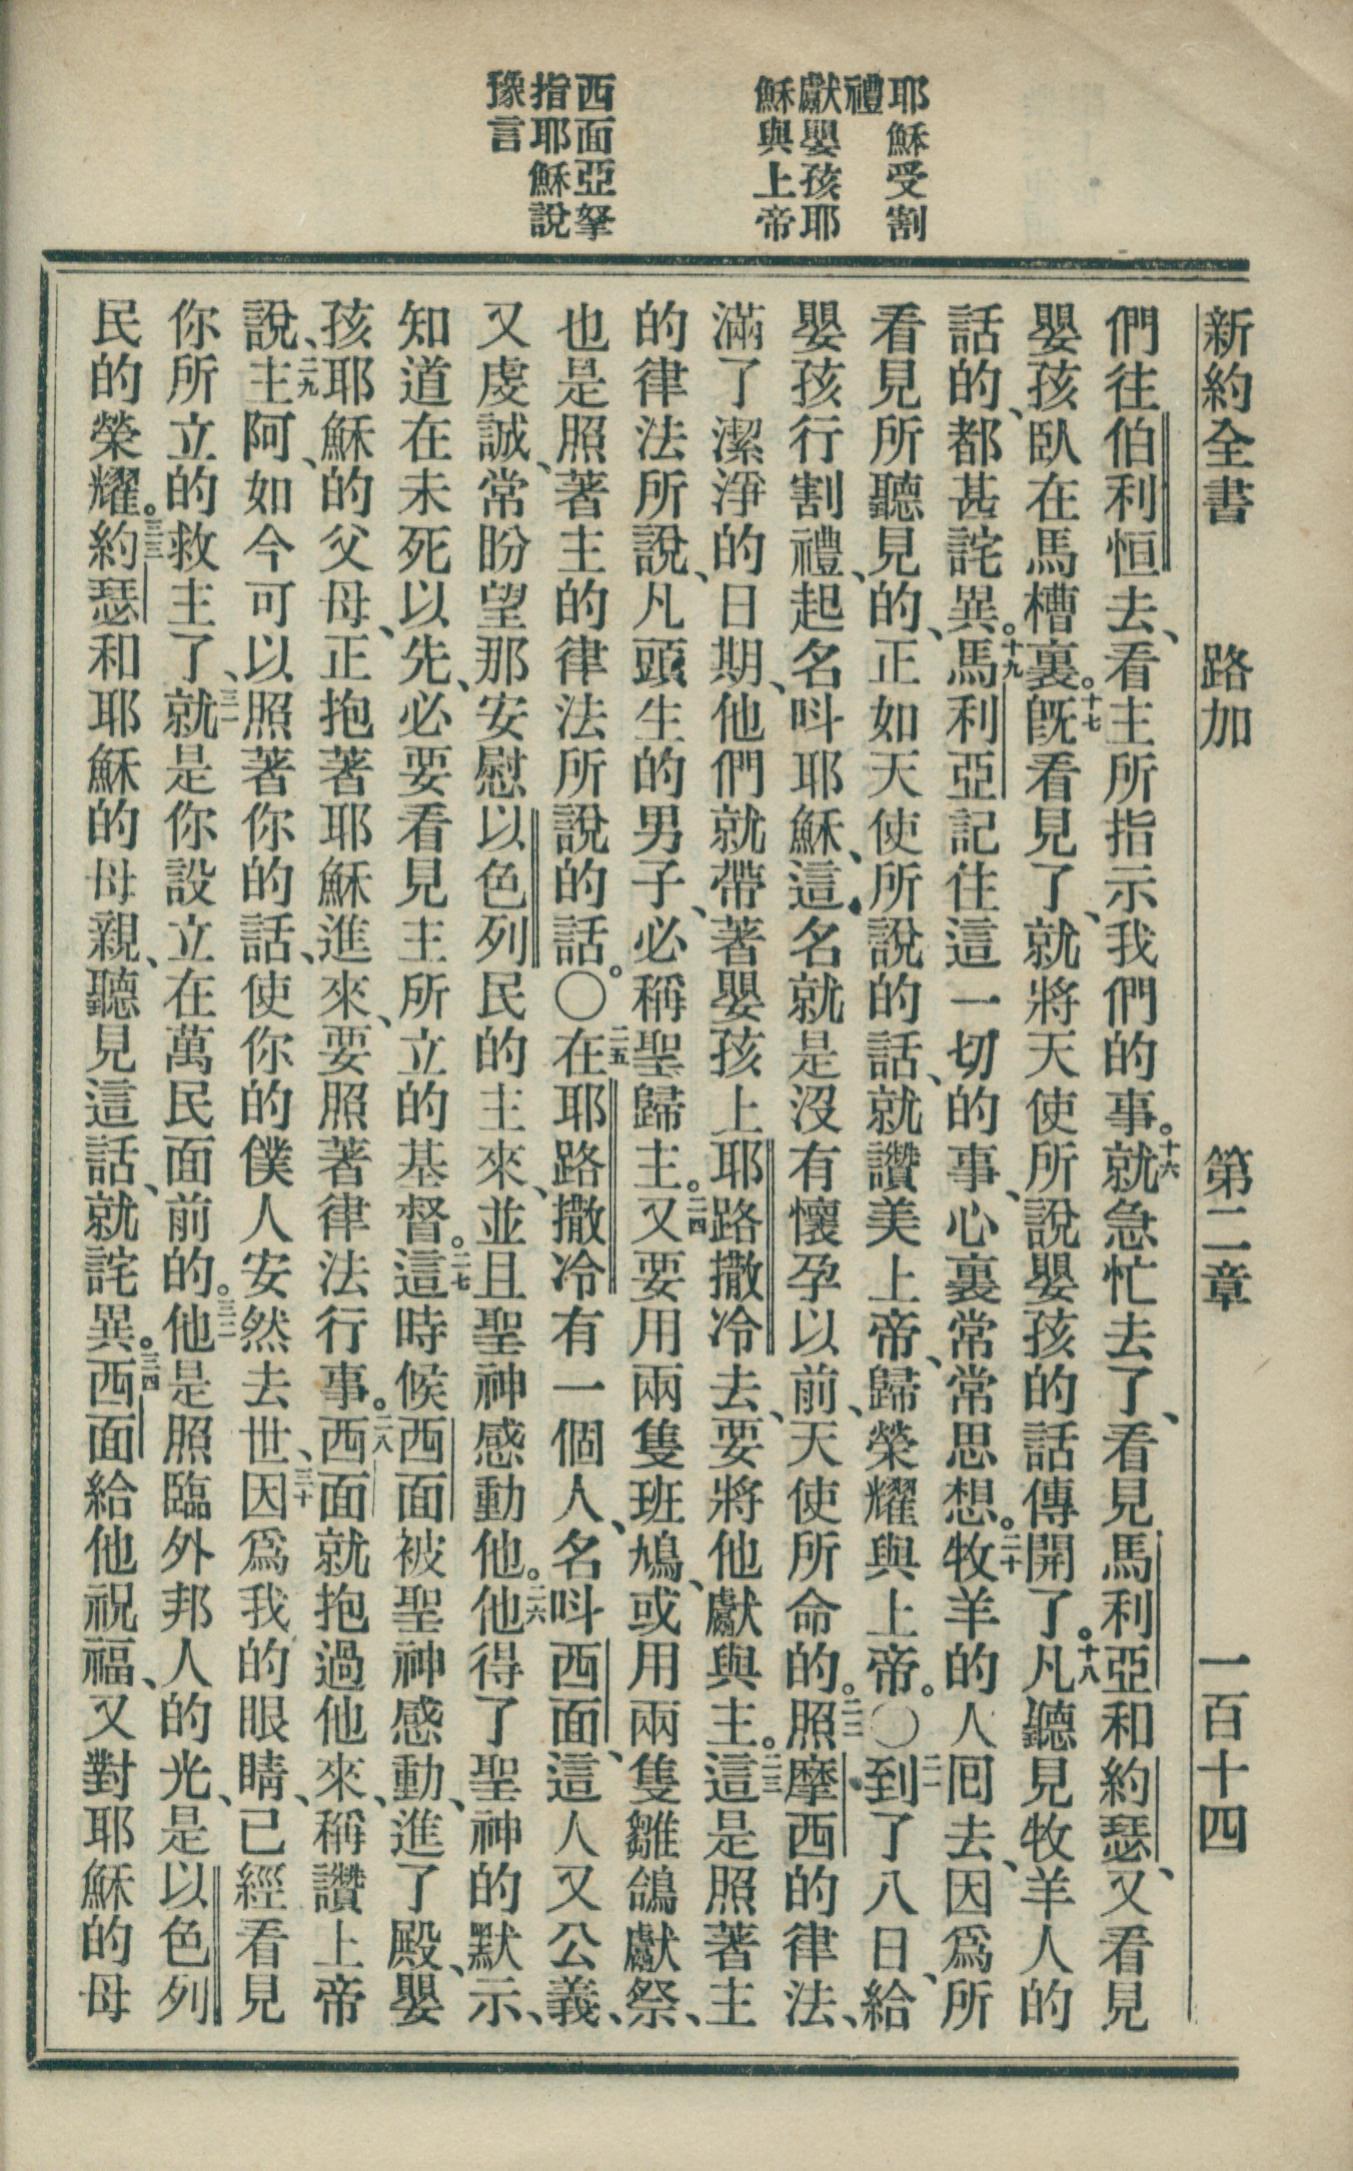 耶穌受割
禮
獻嬰孩耶
穌與上帝
西面亞拏
指耶穌說
豫言
新約全書 路加 第二章 一百十四
們往伯利恒去、看主所指示我們的事。十六就急忙去了、看見馬利亞和約瑟、又看見
嬰孩臥在馬槽裏。十七旣看見了、就將天使所說嬰孩的話傳開了。十八凡聽見牧羊人的
話的、都甚詫異。十九馬利亞記住這一切的事、心裏常常思想。二十牧羊的人囘去、因爲所
看見所聽見的、正如天使所說的話、就讚美上帝、歸榮耀與上帝。〇二一到了八日、給
嬰孩行割禮、起名呌耶穌、這名就是沒有懷孕以前、天使所命的。二二照摩西的律法、
滿了潔淨的日期、他們就帶著嬰孩上耶路撒冷去、要將他獻與主。二三這是照著主
的律法所說、凡頭生的男子、必稱聖歸主。二四又要用兩隻班鳩、或用兩隻雛鴿獻祭、
也是照著主的律法所說的話。〇二五在耶路撒冷有一個人、名呌西面、這人又公義、
又虔誠、常盼望那安慰以色列民的主來、並且聖神感動他。二六他得了聖神的默示、
知道在未死以先、必要看見主所立的基督。二七這時候西面被聖神感動、進了殿、嬰
孩耶穌的父母、正抱著耶穌進來、要照著律法行事。二八西面就抱過他來、稱讚上帝
說、二九主阿、如今可以照著你的話、使你的僕人安然去世、三十因爲我的眼睛、已經看見
你所立的救主了、三一就是你設立在萬民面前的。三二他是照臨外邦人的光、是以色列
民的榮耀。三三約瑟和耶穌的母親、聽見這話、就詫異。三四西面給他祝福、又對耶穌的母